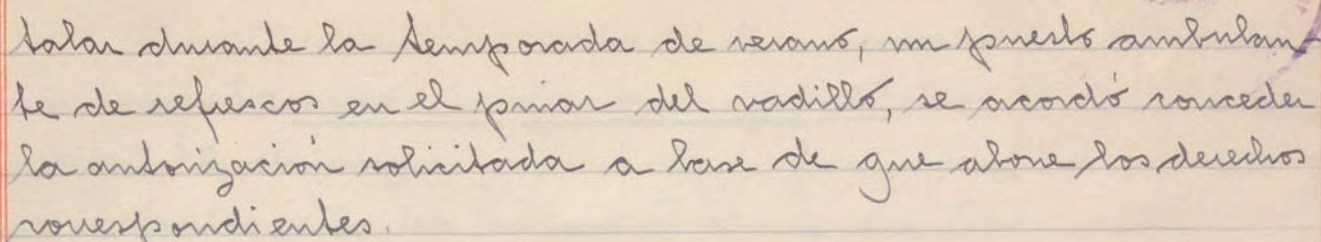 talar durante la temporada de verano, un puesto ambulan-
te de refrescos en el pinar del vadillo, se acordó conceder
la autorización solicitada a base de que abone los derechos
correspondientes.